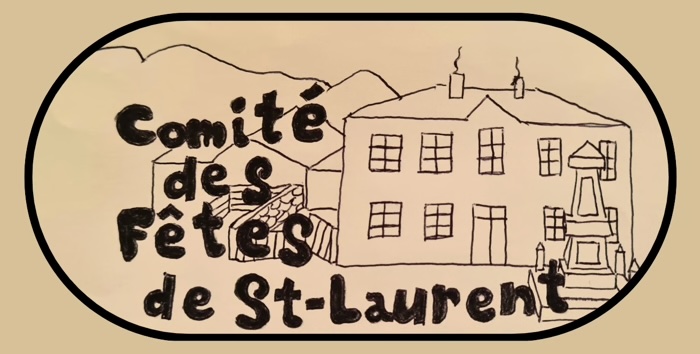 Comité
des
Fêtes
de St-Laurent